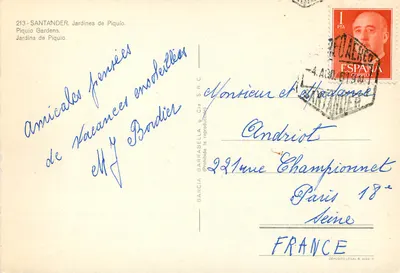 213 - SANTANDER. Jardines de Piquío.
Piquio Gardens.
Jardins de Piquio.
Amicales pensées
de vacances ensoleillées
MJ Bordier
GARCIA GARRABELLA y Cía
1 PTA
ESPAÑA
CORREO AEREO
SANTANDER
Monsieur et Madame
Andriot
221 rue Championnet
Paris 18e
Seine
FRANCE